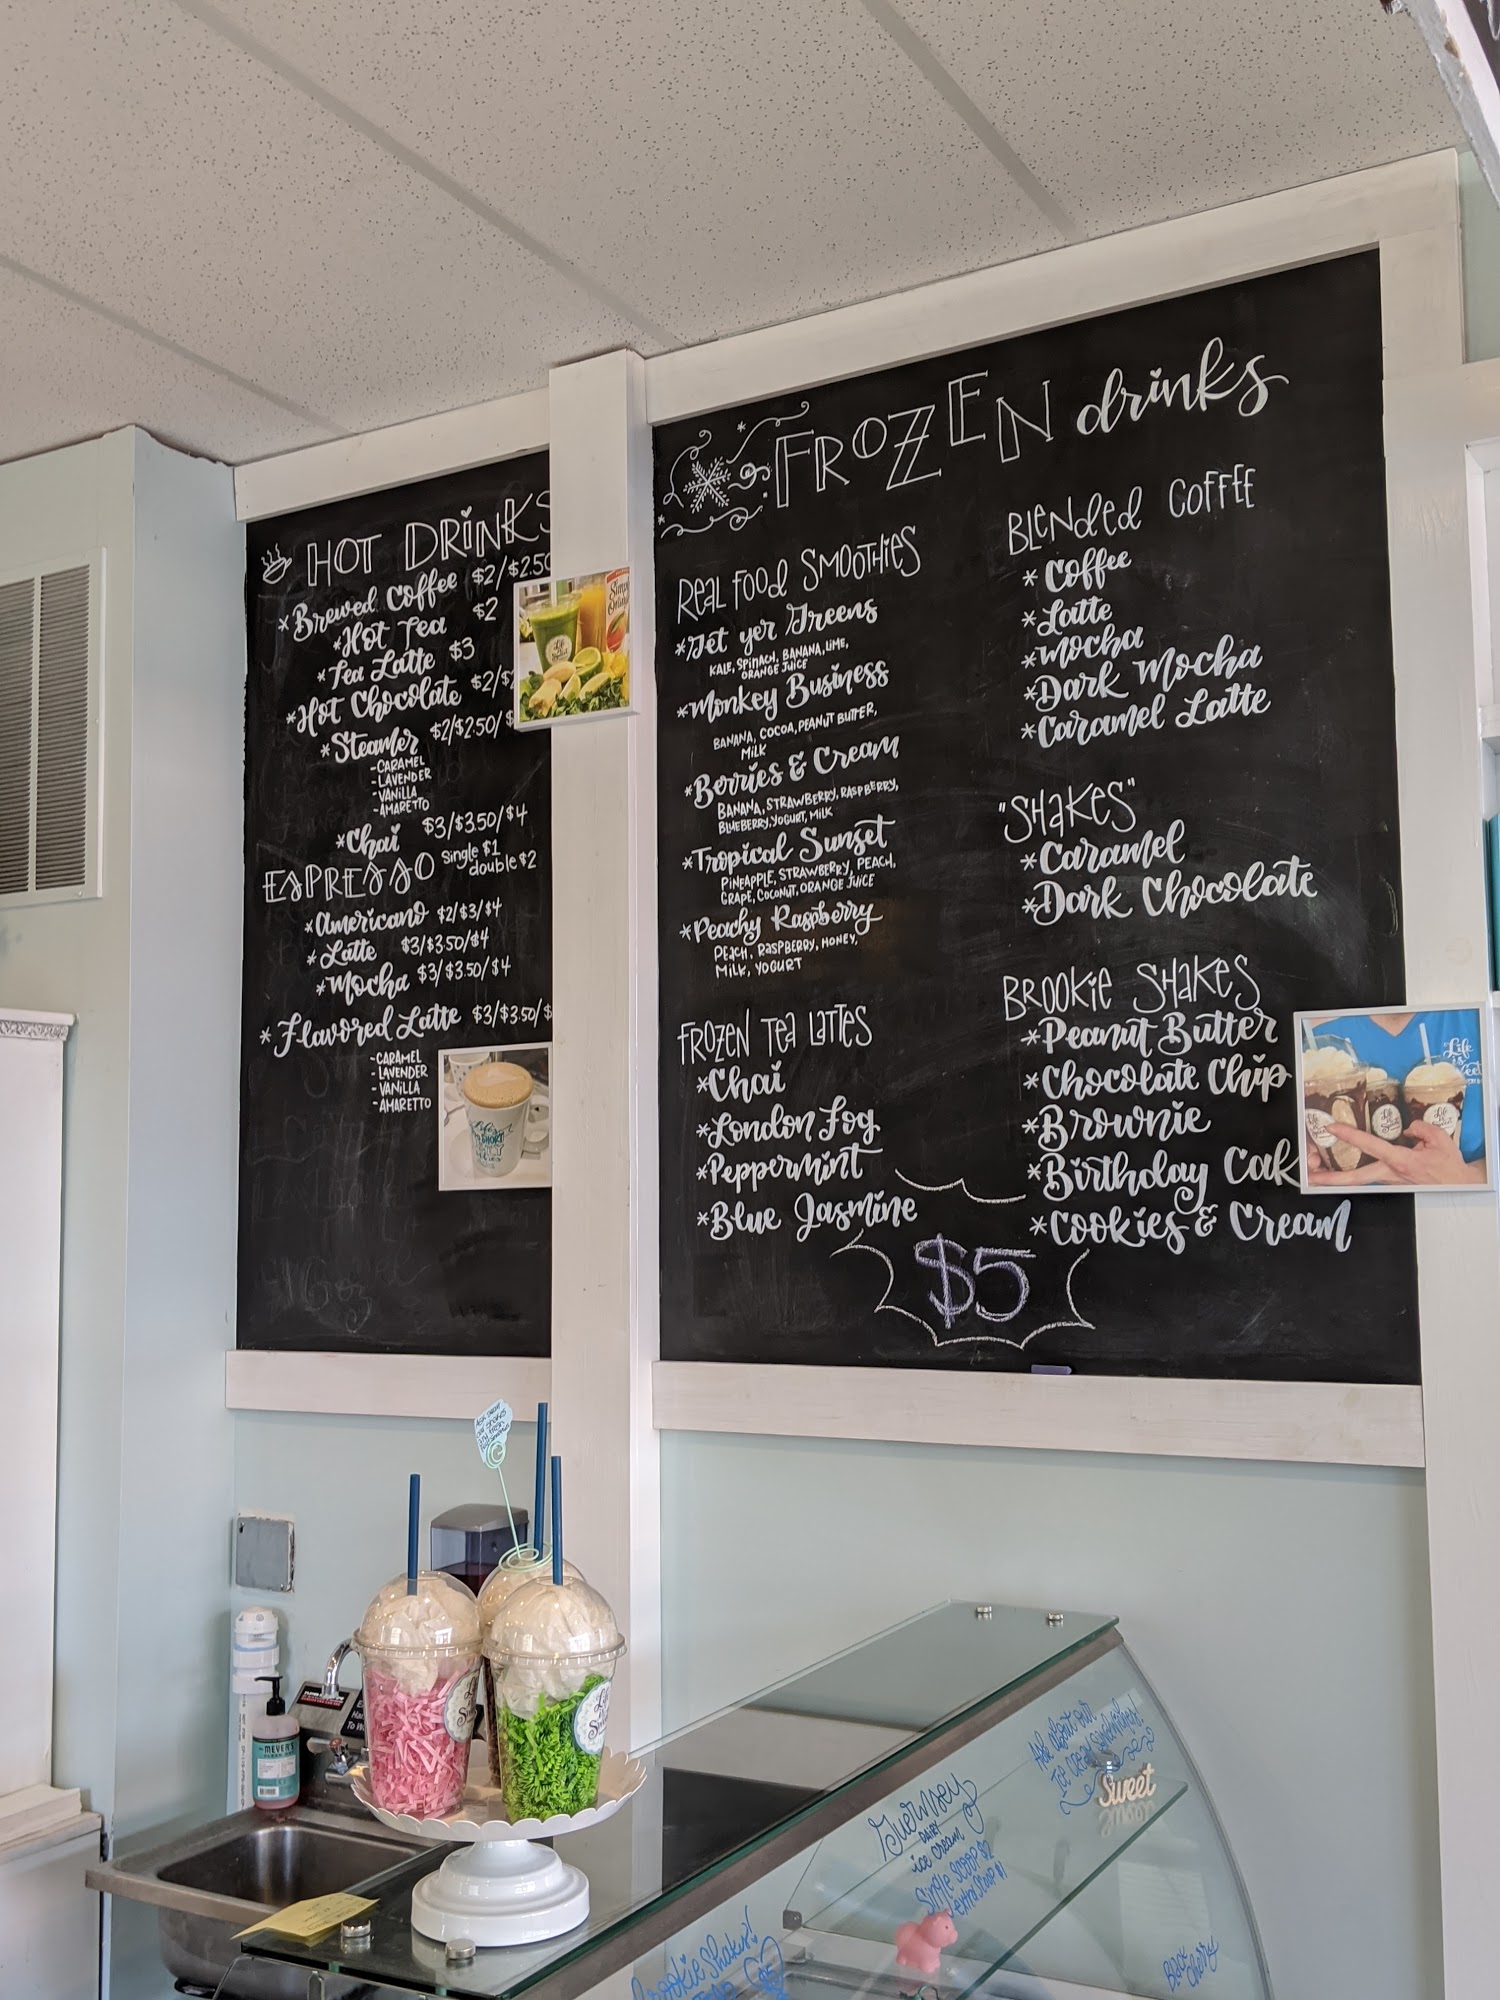 HOT DRINKS
*Brewed Coffee $2/$2.50
*Hot Tea $2
*Tea Latte $3
*Hot Chocolate $2/$
*Steamer $2/$2.50/$
-CARAMEL
-LAVENDER
-VANILLA
-AMARETTO
*Chai $3/$3.50/$4
ESPRESSO single $1
double $2
*Americano $2/$3/$4
*Latte $3/$3.50/$4
*Mocha $3/$3.50/$4
*Flavored Latte $3/$3.50/$
-CARAMEL
-LAVENDER
-VANILLA
-AMARETTO
FROZEN drinks
REAL FOOD SMOOTHIES
*Get yer Greens
KALE, SPINACH, BANANA, LIME,
ORANGE JUICE
*Monkey Business
BANANA, COCOA, PEANUT BUTTER,
MILK
*Berries & Cream
BANANA, STRAWBERRY, RASPBERRY,
BLUEBERRY, YOGURT, MILK
*Tropical Sunset
PINEAPPLE, STRAWBERRY, PEACH,
GRAPE, COCONUT, ORANGE JUICE
*Peachy Raspberry
PEACH, RASPBERRY, HONEY,
MILK, YOGURT
FROZEN TEA LATTES
*Chai
*London Fog
*Peppermint
*Blue Jasmine
BLENDED COFFEE
*Coffee
*Latte
*Mocha
*Dark Mocha
*Caramel Latte
"SHAKES"
*Caramel
*Dark Chocolate
BROOKIE SHAKES
*Peanut Butter
*Chocolate Chip
*Brownie
*Birthday Cak
*Cookies & Cream
$5
Life
is
MEYER'S
Ask about our
Ice cream Sandwiches!
Sweet
Guernsey
DAIRY
ice cream
Single scoop $2
extra scoop $1
Brookie Shakes!
$5
Black
Cherry